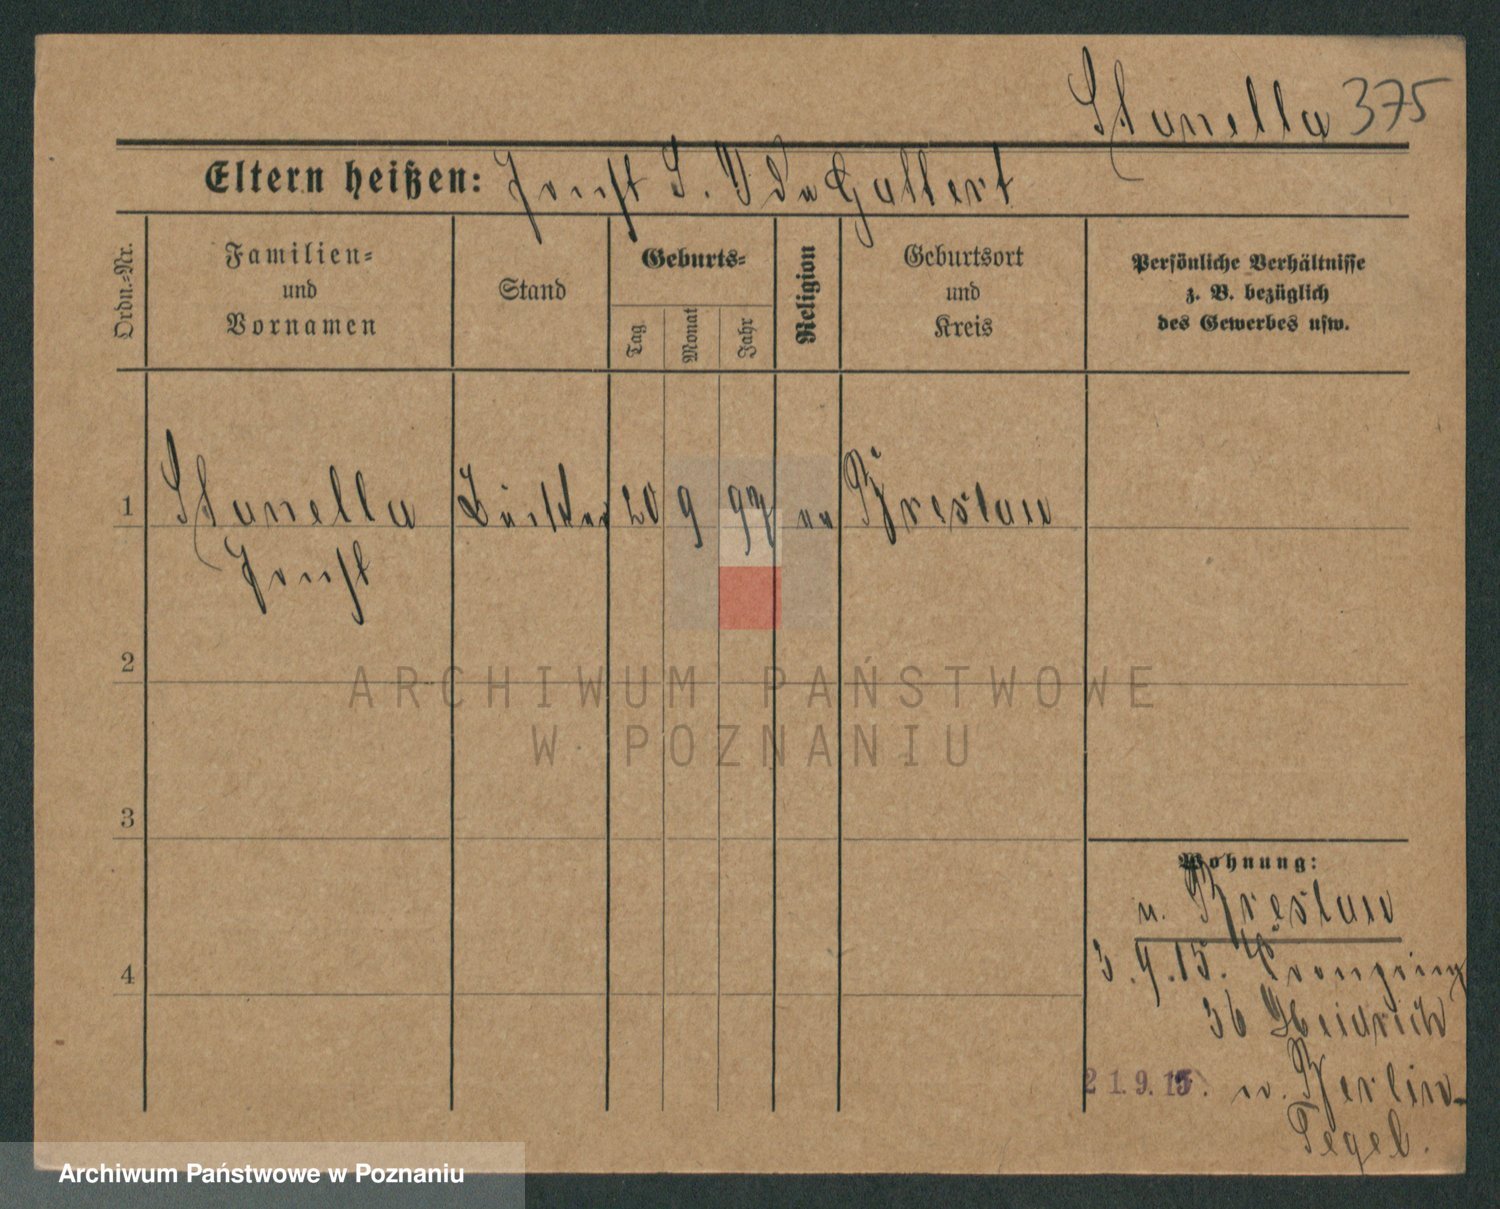 Stanella 375
Eltern heißen: L. Gallert
Ordn.-Nr.
Familien-
und
Vornamen
Stand
Geburts-
Tag
Monat
Jahr
Religion
Geburtsort
und
Kreis
Persönliche Verhältnisse
z. B. bezüglich
des Gewerbes usw.
1 Stanella 20 9 97 Breslau
2
3
4
Wohnung:
n. Breslau
3.9.15.
36 Heidrich
21.9.15. n. Berlin-
Tegel.
ARCHIWUM PAŃSTWOWE
W POZNANIU
Archiwum Państwowe w Poznaniu